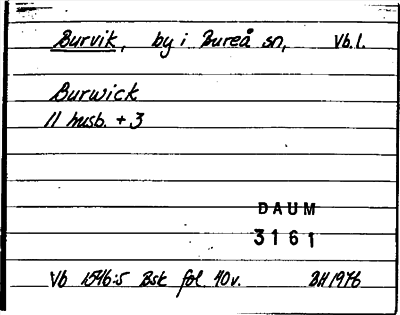 Burvik, by i Bureå sn, Vb.l.
Burwick
11 husb. + 3
DAUM
3161
Vb 1546:5 Bsk fol. 40v. BH 1976